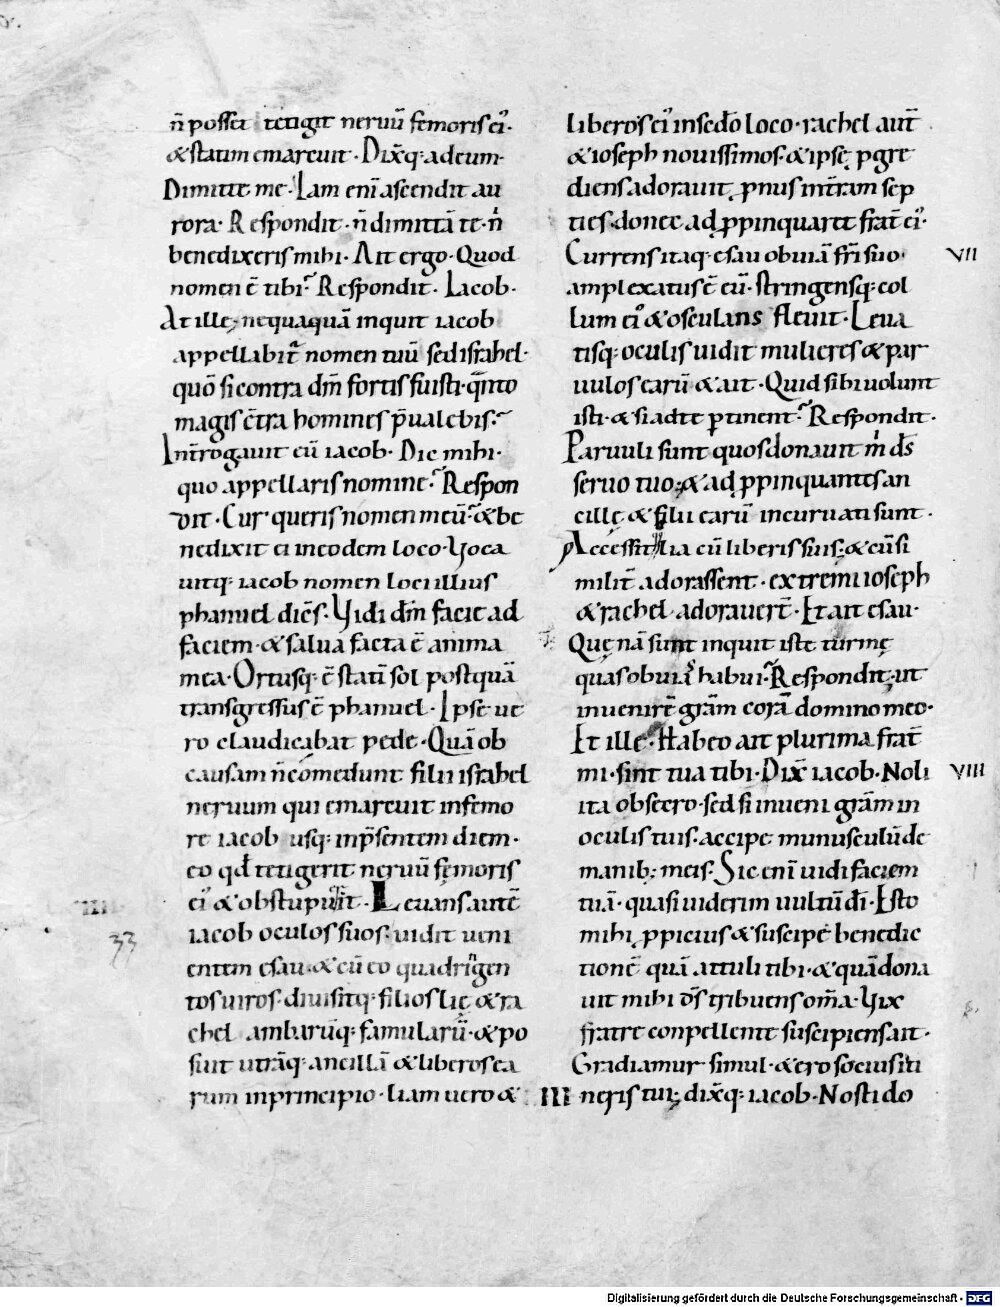 n̄ posset tetigit neruū femoris ei᾽·
& statim emarcuit · Dix̄q; ad eum·
Dimitte me · Iam eni᷒ ascendit au
rora · Respondit · n̄ dimittā te · n᷒
benedixeris mihi · Ait ergo · Quod
nomen ē tibi? Respondit · Iacob ·
At ille; nequaquā inquit iacob
appellabit᷒ nomen tuū sed israhel ·
quō si contra dm̄ fortis fuisti · qn̄to
magis c̄tra homines p̄ualebis?
Int̄rogauit eū iacob · Dic mihi ·
quo appellaris nomine? Respon
dit · Cur queris nomen meū? & be
nedixit ei in eodem loco · Voca
uitq; iacob nomen loci illius
phanuel dicēs · Vidi dm̄ facie ad
faciem · & salua facta ē anima
mea · Ortusq; ē statī sol postquā
transgressus ē phanuel · Ipse ue
ro claudicabat pede · Quā ob
causam n̄ comedunt filii israhel
neruum qui emarcuit in femo
re iacob usq; in p̄sentem diem ·
eo qd̄ tetigerit neruū femoris
ei᾽ & obstupuit · Leuans autē
iacob oculos suos · uidit ueni
entem esau · & cū eo quadringen
tos uiros · diuisitq; filios lię & ra
chel ambarūq; famularū · & po
suit utrāq; ancillā & liberos ea
rum in principio · liam uero &
33
liberos ei᾽ in sedo loco · rachel aut̄
& ioseph nouissimos · & ipsę ꝓgre
diens adorauit ꝓnus in t̄ram sep
ties · donec adꝓpinquaret frat̄ ei᾽ ·
Currens itaq; esau obuiā fr̄i suo ·
VII
amplexatus ē eū · stringensq; col
lum ei᾽ & osculans fleuit · Leua
tisq; oculis uidit mulieres & par
uulos earū & ait · Quid sibi uolunt
isti · & si ad te ꝑtinent? Respondit ·
Paruuli sunt quos donauit m᷒ ds̄
seruo tuo; & adꝓpinquantes an
cillę & filii earū incuruati sunt ·
Accessit lia cū liberis suis; & cū si
milit̄ adorassent · extremi ioseph
& rachel adorauer̄t · Et ait esau ·
Quęnā sunt inquit istę turmę
quas obuiā habui? Respondit; ut
inuenirē grām corā domino meo ·
Et ille · Habeo ait plurima frat̄
mi · sint tua tibi · Dix̄ iacob · Noli
VIII
ita obsecro · sed si inueni grām in
oculis tuis · accipe munusculū de
manib; meis · Sic eni᷒ uidi faciem
tuā · quasi uiderim uultū dī · Esto
mihi ꝓpicius & suscipe benedic
tionē quā attuli tibi · & quā dona
uit mihi ds̄ tribuens om̄a · Vix
fratre conpellente suscipiens ait ·
Gradiamur simul · & ero socius iti
III neris tui; dix̄q; iacob · Nosti do
Digitalisierung gefördert durch die Deutsche Forschungsgemeinschaft - DFG